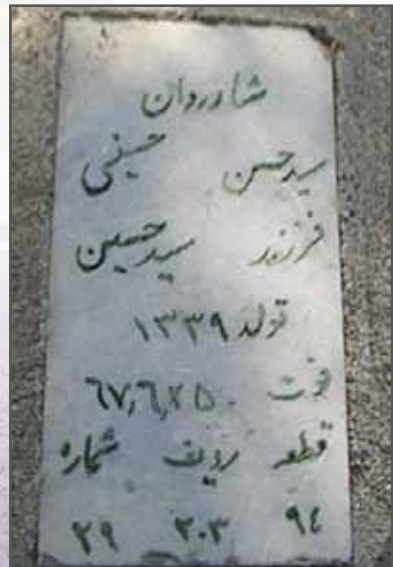 شادروان
سید حسن حسینی
فرزند سید حسین
تولد ۱۳۳۹
فوت ۶۷٫۶٫۲۵
قطعه ردیف شماره
۹٤ ۲۰۳ ۲۹